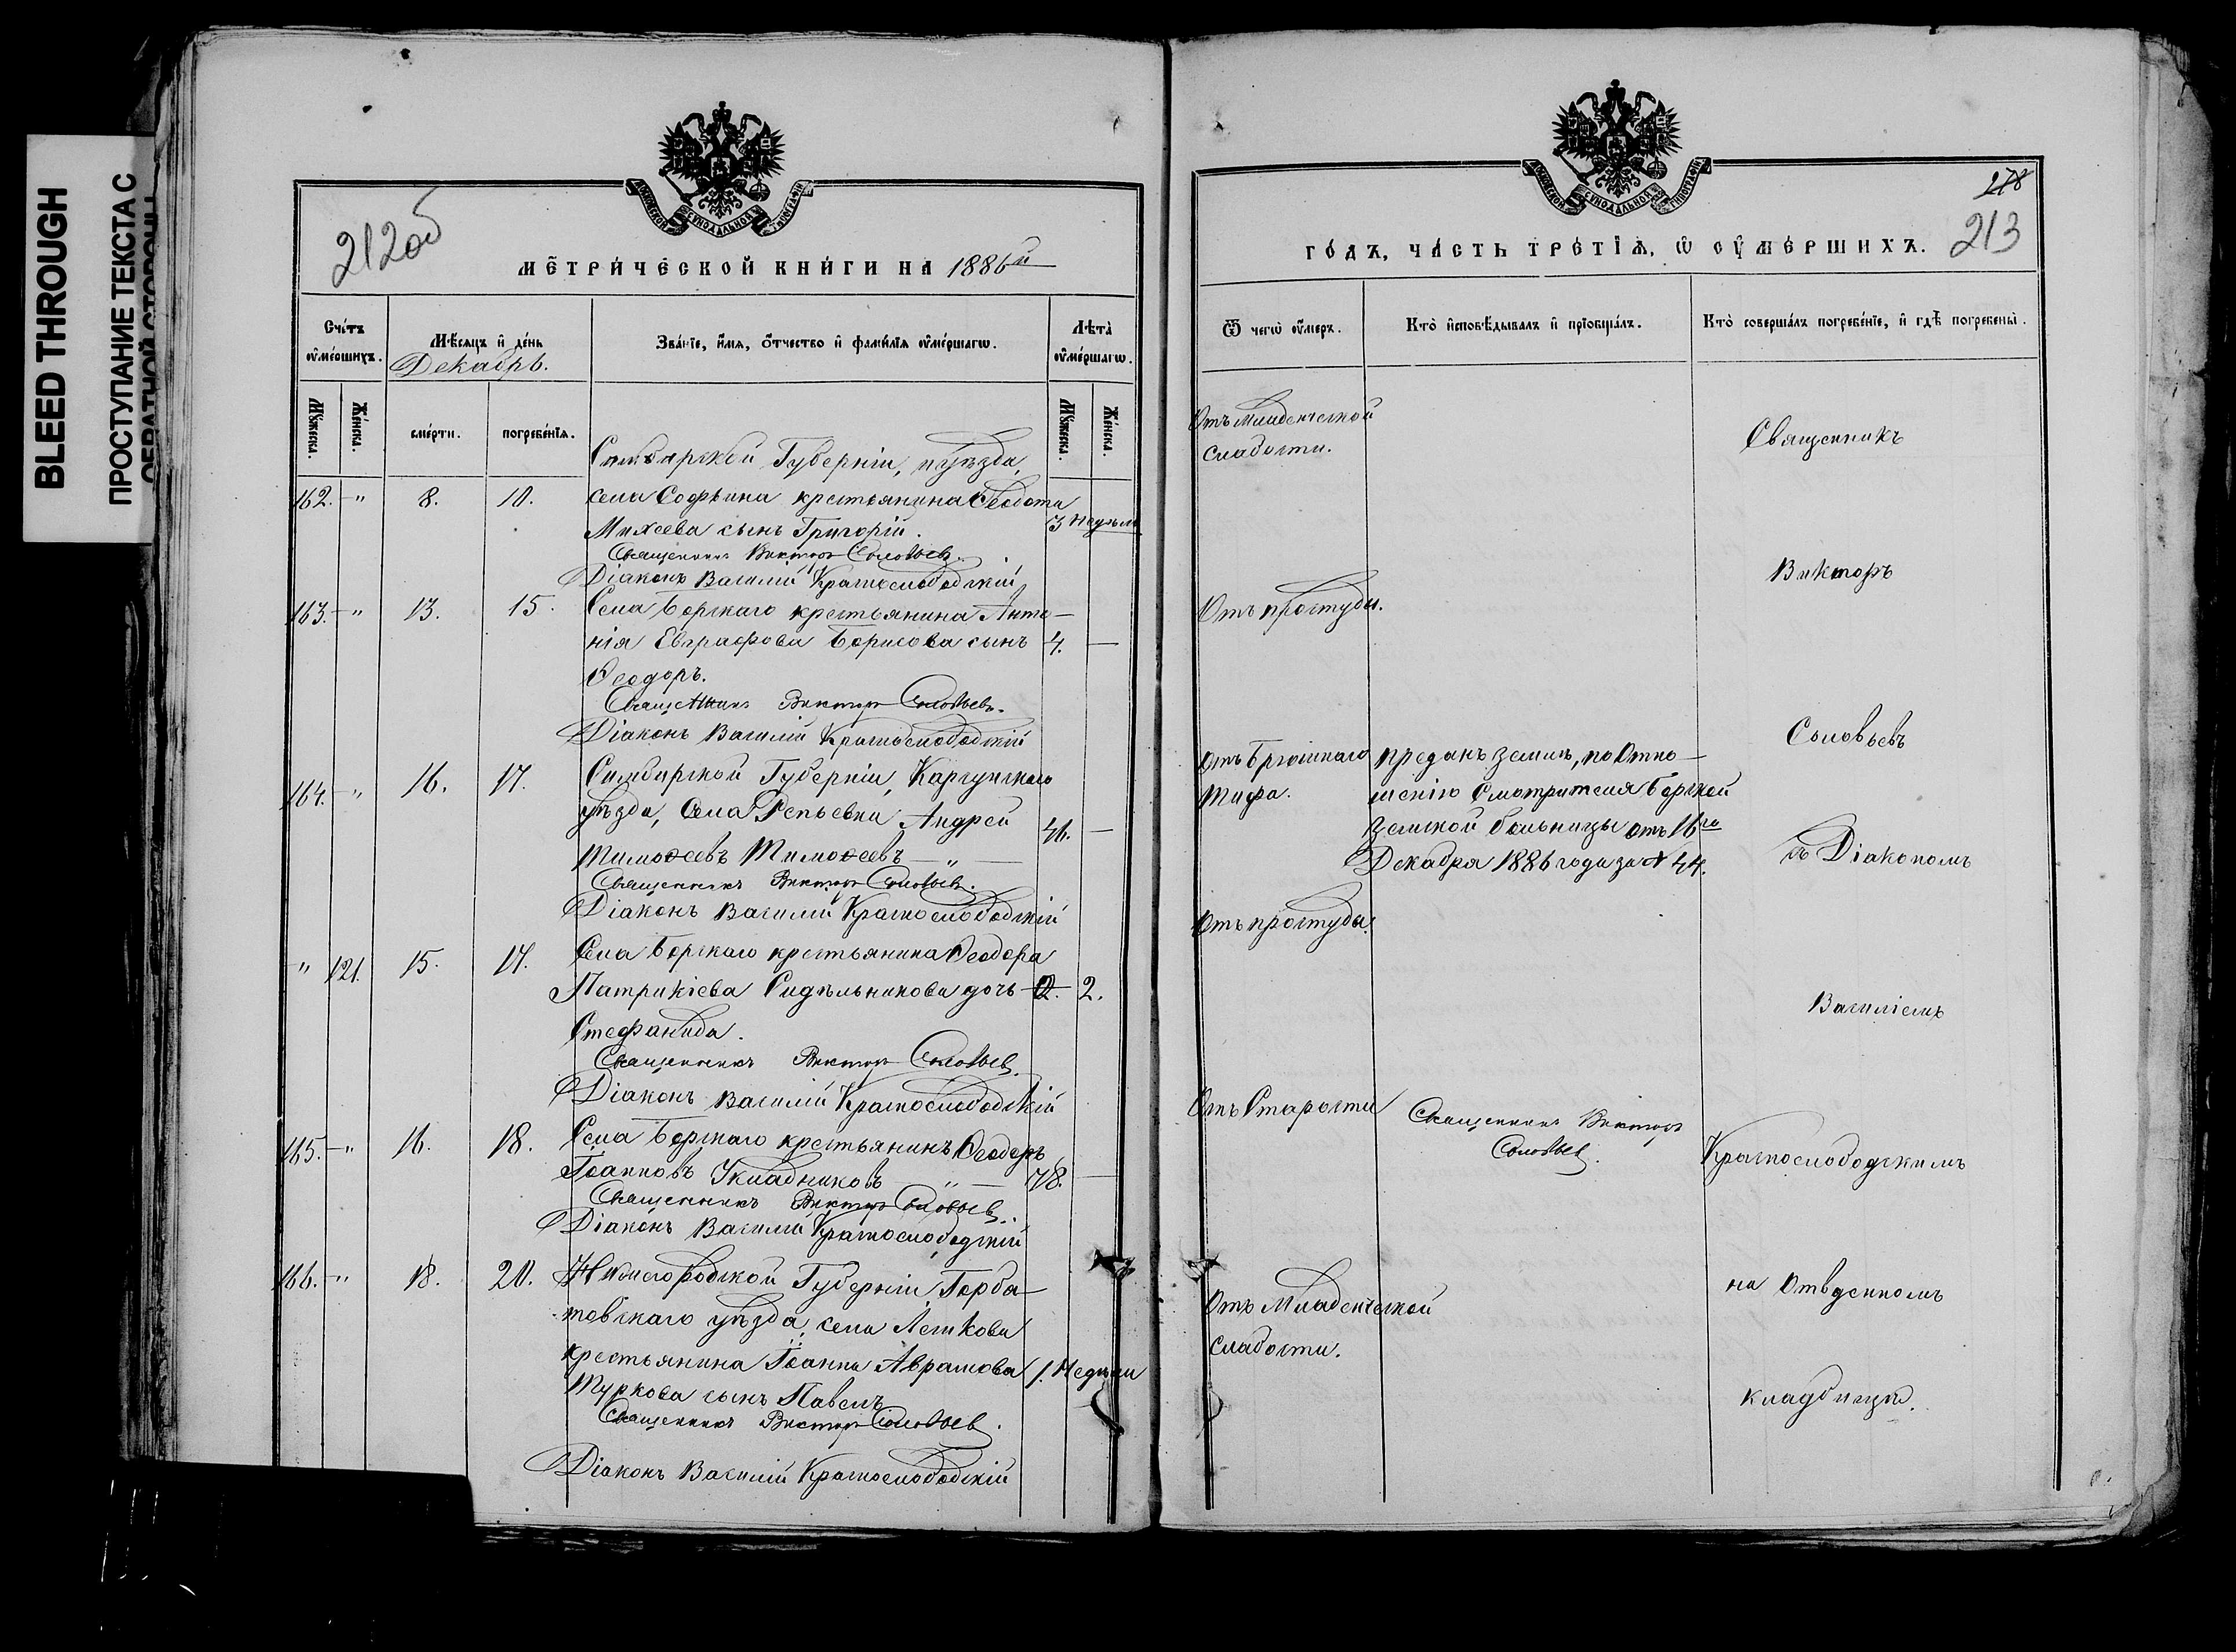 BLEED THROUGH
ПРОСТУПАНИЕ ТЕКСТА С
ОБРАТНОЙ СТОРОНЫ
212 об
МЕТРИЧЕСКОЙ КНИГИ НА 1886й
Счетъ умершихъ.
Мѣсяцъ и день
Декабрь.
Званіе, имя, отчество и фамилія умершагω.
Лѣта умершагω.
Мужеска.
Женска.
смерти.
погребенія.
Мужеска.
Женска.
Симбирской Губерніи, и уѣзда,
162. — " 8. 10. села Софьина крестьянина Ѳеодота
Михеева сынъ Григорій. 3 недѣли
Священникъ Викторъ Соловьевъ.
Діаконъ Василій Краснослободскій
163. — " 13. 15. Села Борскаго крестьянина Анто-
нія Евграфова Борисова сынъ 4. —
Ѳеодоръ.
Священникъ Викторъ Соловьевъ.
Діаконъ Василій Краснослободскій
164. — " 16. 17. Симбирской Губерніи, Карсунскаго
уѣзда, Села Репьевки Андрей
Тимоѳеевъ Тимоѳеевъ — " — 46. —
Священникъ Викторъ Соловьевъ.
Діаконъ Василій Краснослободскій
" 121. 15. 17. Села Борскаго крестьянина Ѳеодора
Патрикіева Сидѣльникова дочь 2. 2.
Стефанида.
Священникъ Викторъ Соловьевъ.
Діаконъ Василій Краснослободскій
165. — " 16. 18. Села Борскаго крестьянинъ Ѳеодоръ
Іоанновъ Укладниковъ " — 78. —
Священникъ Викторъ Соловьевъ.
Діаконъ Василій Краснослободскій
166. — " 18. 20. Нижегородской Губерніи Горба-
товскаго уѣзда, села
крестьянина Іоанна Аврамова 1. Недѣли
Туркова сынъ Павелъ
Священникъ Викторъ Соловьевъ.
Діаконъ Василій Краснослободскій
278
213
ГОДЪ, ЧАСТЬ ТРЕТІЯ, Ѿ ОУМЕРШИХЪ.
Ѿ чегω умеръ.
Кто исповѣдывалъ и пріобщалъ.
Кто совершалъ погребеніе, и гдѣ погребены.
Отъ младенческой
слабости.
Отъ простуды.
Отъ брюшнаго
тифа.
преданъ землѣ, по Отно-
шенію Смотрителя Борской
земской больницы отъ 16го
Декабря 1886 года за № 44.
Отъ простуды.
Отъ Старости
Священникъ Викторъ
Соловьевъ.
Отъ Младенческой
слабости.
Священникъ
Викторъ
Соловьевъ
съ Діакономъ
Василіемъ
Краснослободскимъ
на Отведенномъ
кладбищѣ.